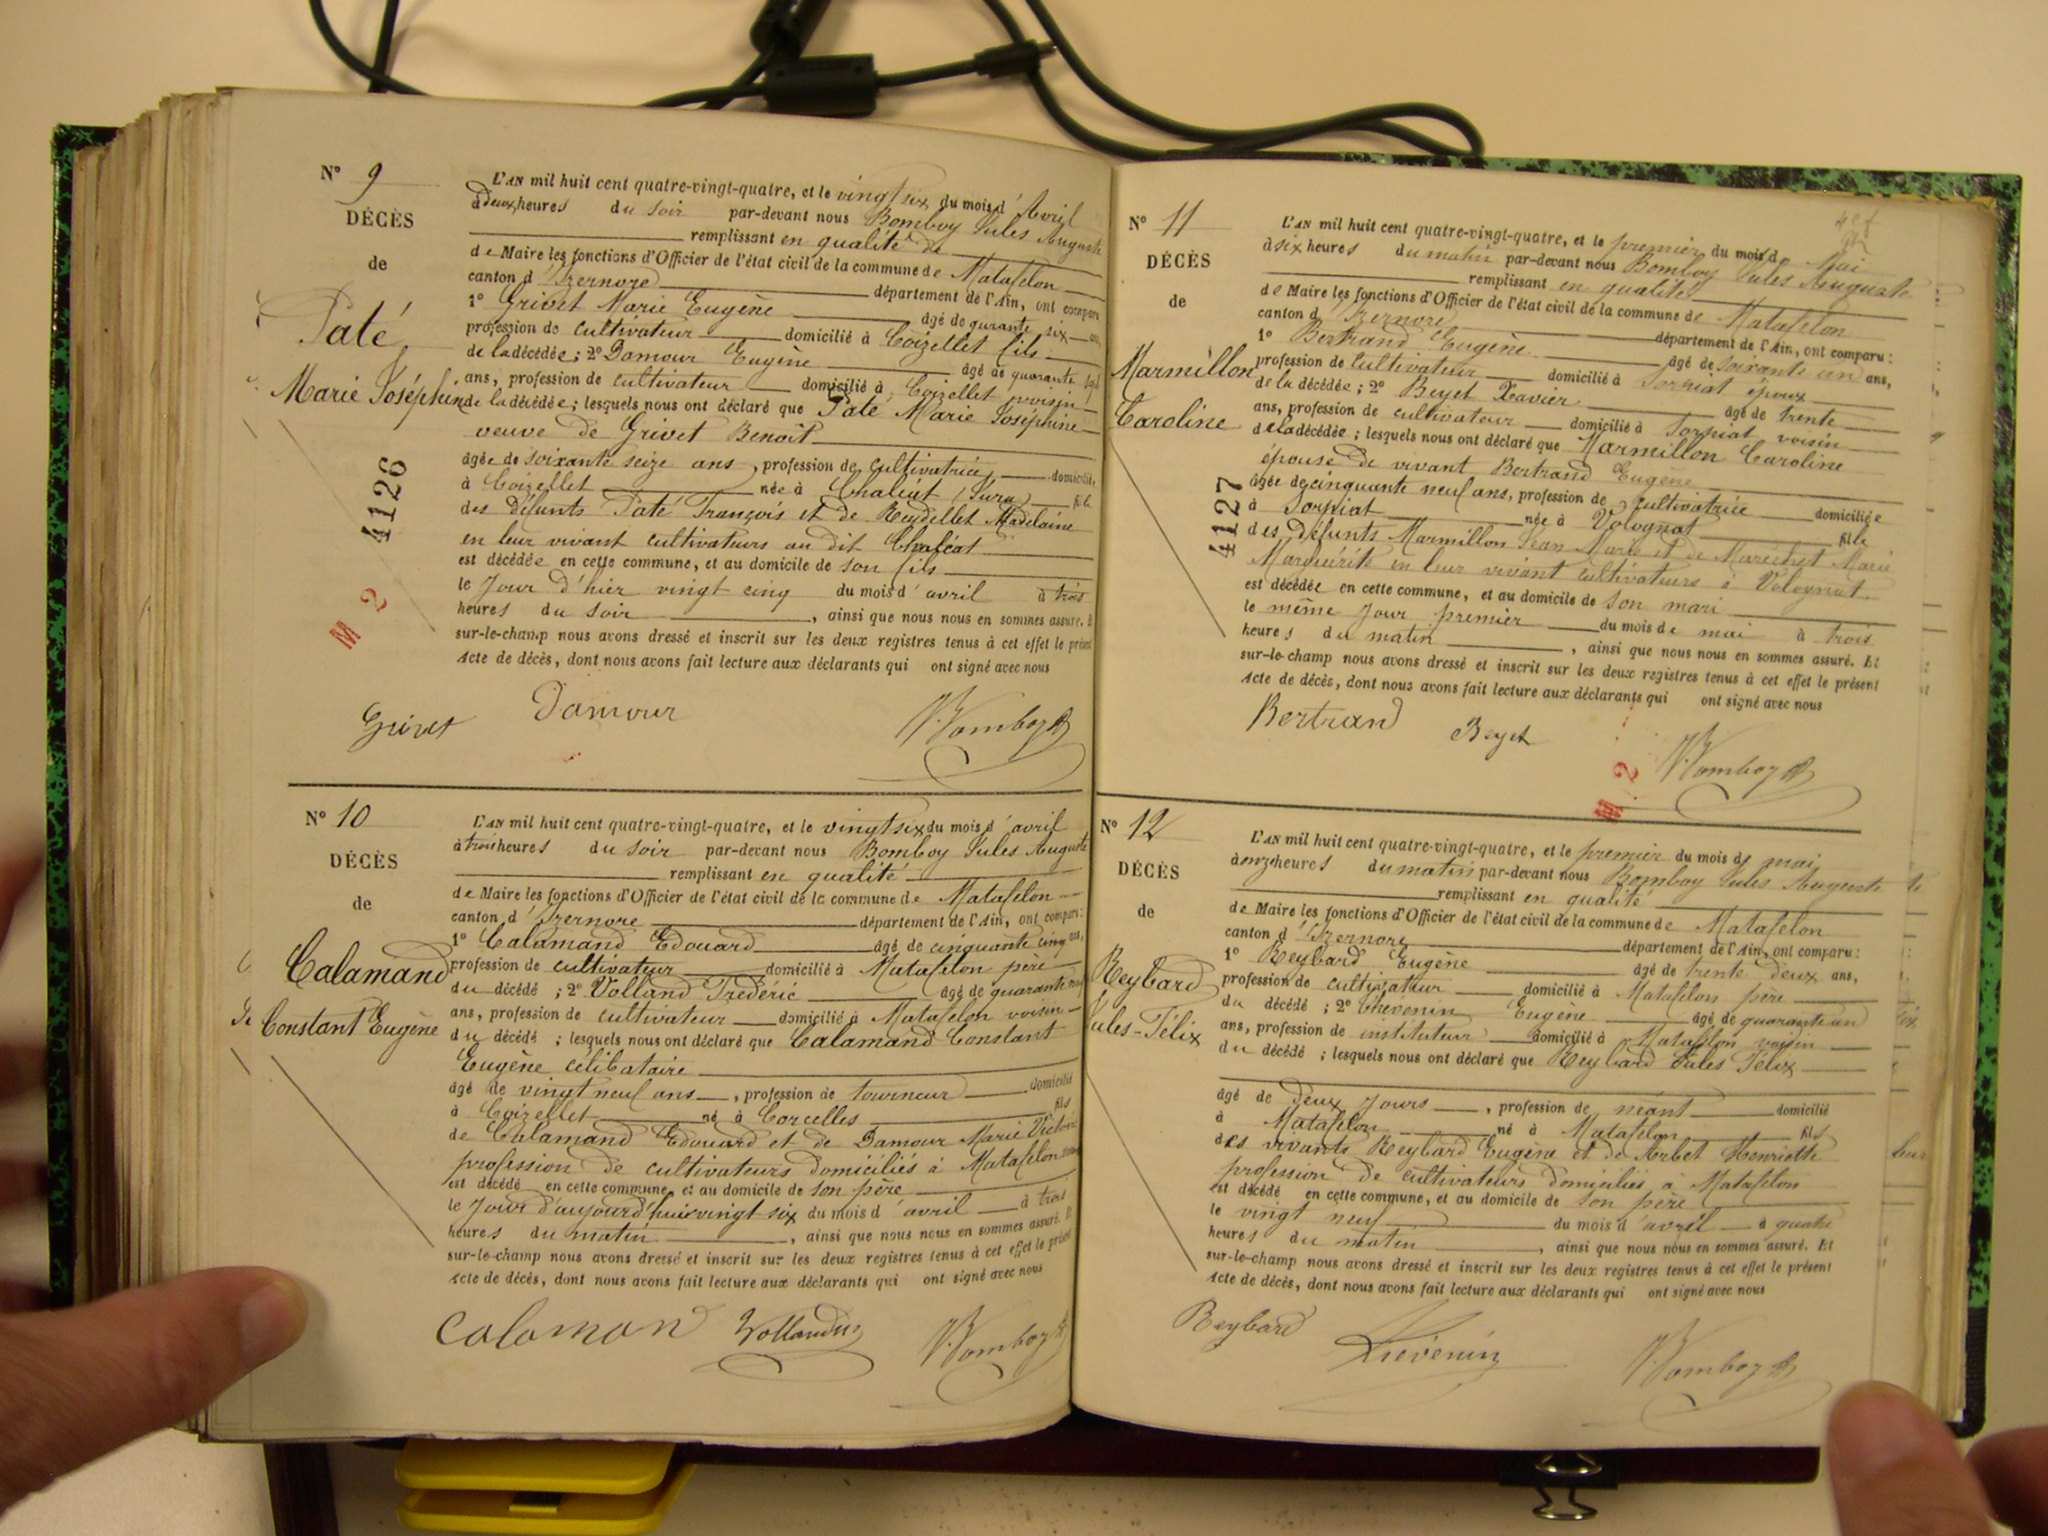 N° 9
DÉCÈS
de
Paté
Marie Joséphine
4126
M 2
L'AN mil huit cent quatre-vingt-quatre, et le vingt six du mois d'Avril
à deux heures du soir par-devant nous Bomboy Jules Auguste
remplissant en qualité de
de Maire les fonctions d'Officier de l'état civil de la commune de Matafelon
canton d'Izernore département de l'Ain, ont comparu
1° Grivet Marie Eugène âgé de quarante six ans,
profession de cultivateur domicilié à Coizellet fils
de la décédée; 2° Damour Eugène âgé de quarante sept
ans, profession de cultivateur domicilié à Coizellet voisin
de la décédée; lesquels nous ont déclaré que Paté Marie Joséphine
veuve de Grivet Benoit
âgée de soixante seize ans, profession de cultivatrice domiciliée
à Coizellet née à Chaléat (Jura) fille
des défunts Paté François et de Reydellet Madelaine
en leur vivant cultivateurs au dit Chaléat
est décédée en cette commune, et au domicile de son fils
le Jour d'hier vingt cinq du mois d'avril à trois
heures du soir, ainsi que nous nous en sommes assuré. Et
sur-le-champ nous avons dressé et inscrit sur les deux registres tenus à cet effet le présent
acte de décès, dont nous avons fait lecture aux déclarants qui ont signé avec nous
Grivet Damour Bomboy
N° 10
DÉCÈS
de
Calamand
Constant Eugène
L'AN mil huit cent quatre-vingt-quatre, et le vingt six du mois d'avril
à trois heures du soir par-devant nous Bomboy Jules Auguste
remplissant en qualité
de Maire les fonctions d'Officier de l'état civil de la commune de Matafelon
canton d'Izernore département de l'Ain, ont comparu:
1° Calamand Edouard âgé de cinquante cinq ans,
profession de cultivateur domicilié à Matafelon père
du décédé; 2° Volland Frédéric âgé de quarante
ans, profession de cultivateur domicilié à Matafelon voisin
du décédé; lesquels nous ont déclaré que Calamand Constant
Eugène célibataire
âgé de vingt neuf ans, profession de tourneur domicilié
à Coizellet né à Corcelles fils
de Calamand Edouard et de Damour Marie
profession de cultivateurs domiciliés à Matafelon
est décédé en cette commune, et au domicile de son père
le Jour d'aujourd'hui vingt six du mois d'avril à trois
heures du matin, ainsi que nous nous en sommes assuré. Et
sur-le-champ nous avons dressé et inscrit sur les deux registres tenus à cet effet le présent
acte de décès, dont nous avons fait lecture aux déclarants qui ont signé avec nous
Calaman Volland Bomboy
N° 11
DÉCÈS
de
Marmillon
Caroline
4127
M 2
L'AN mil huit cent quatre-vingt-quatre, et le premier du mois de Mai
à six heures du matin par-devant nous Bomboy Jules Auguste
remplissant en qualité
de Maire les fonctions d'Officier de l'état civil de la commune de Matafelon
canton d'Izernore département de l'Ain, ont comparu:
1° Bertrand Eugène âgé de soixante un ans,
profession de cultivateur domicilié à Sorpiat époux
de la décédée; 2° Beyet Xavier âgé de trente
ans, profession de cultivateur domicilié à Sorpiat voisin
de la décédée; lesquels nous ont déclaré que Marmillon Caroline
épouse de vivant Bertrand Eugène
âgée de cinquante neuf ans, profession de cultivatrice domiciliée
à Sorpiat née à Volognat fille
des défunts Marmillon Jean Marie et de Maréchet Marie
Marguérite en leur vivant cultivateurs à Volognat
est décédée en cette commune, et au domicile de son mari
le même Jour premier du mois de mai à trois
heures du matin, ainsi que nous nous en sommes assuré. Et
sur-le-champ nous avons dressé et inscrit sur les deux registres tenus à cet effet le présent
acte de décès, dont nous avons fait lecture aux déclarants qui ont signé avec nous
Bertrand Beyet Bomboy
N° 12
DÉCÈS
de
Reybard
Jules-Félix
L'AN mil huit cent quatre-vingt-quatre, et le premier du mois de mai
à onze heures du matin par-devant nous Bomboy Jules Auguste
remplissant en qualité
de Maire les fonctions d'Officier de l'état civil de la commune de Matafelon
canton d'Izernore département de l'Ain, ont comparu:
1° Reybard Eugène âgé de trente deux ans,
profession de cultivateur domicilié à Matafelon père
du décédé; 2° Thévenin Eugène âgé de quarante un
ans, profession de instituteur domicilié à Matafelon voisin
du décédé; lesquels nous ont déclaré que Reybard Jules Félix
âgé de deux Jours, profession de néant domicilié
à Matafelon né à Matafelon fils
des vivants Reybard Eugène et de Morbet Henriette
profession de cultivateurs domiciliés à Matafelon
est décédé en cette commune, et au domicile de son père
le vingt neuf du mois d'avril à quatre
heures du matin, ainsi que nous nous en sommes assuré. Et
sur-le-champ nous avons dressé et inscrit sur les deux registres tenus à cet effet le présent
acte de décès, dont nous avons fait lecture aux déclarants qui ont signé avec nous
Reybard Thévenin Bomboy